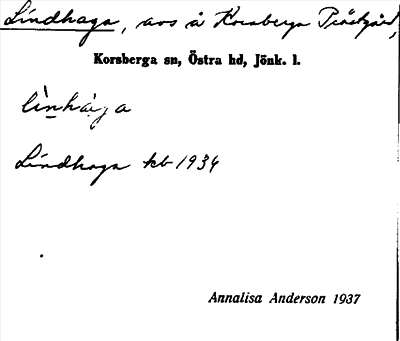 Lindhaga, avs å Korsberga Prästgård,
Korsberga sn, Östra hd, Jönk. l.
lìnhága
Lindhaga kb 1934
Annalisa Anderson 1937